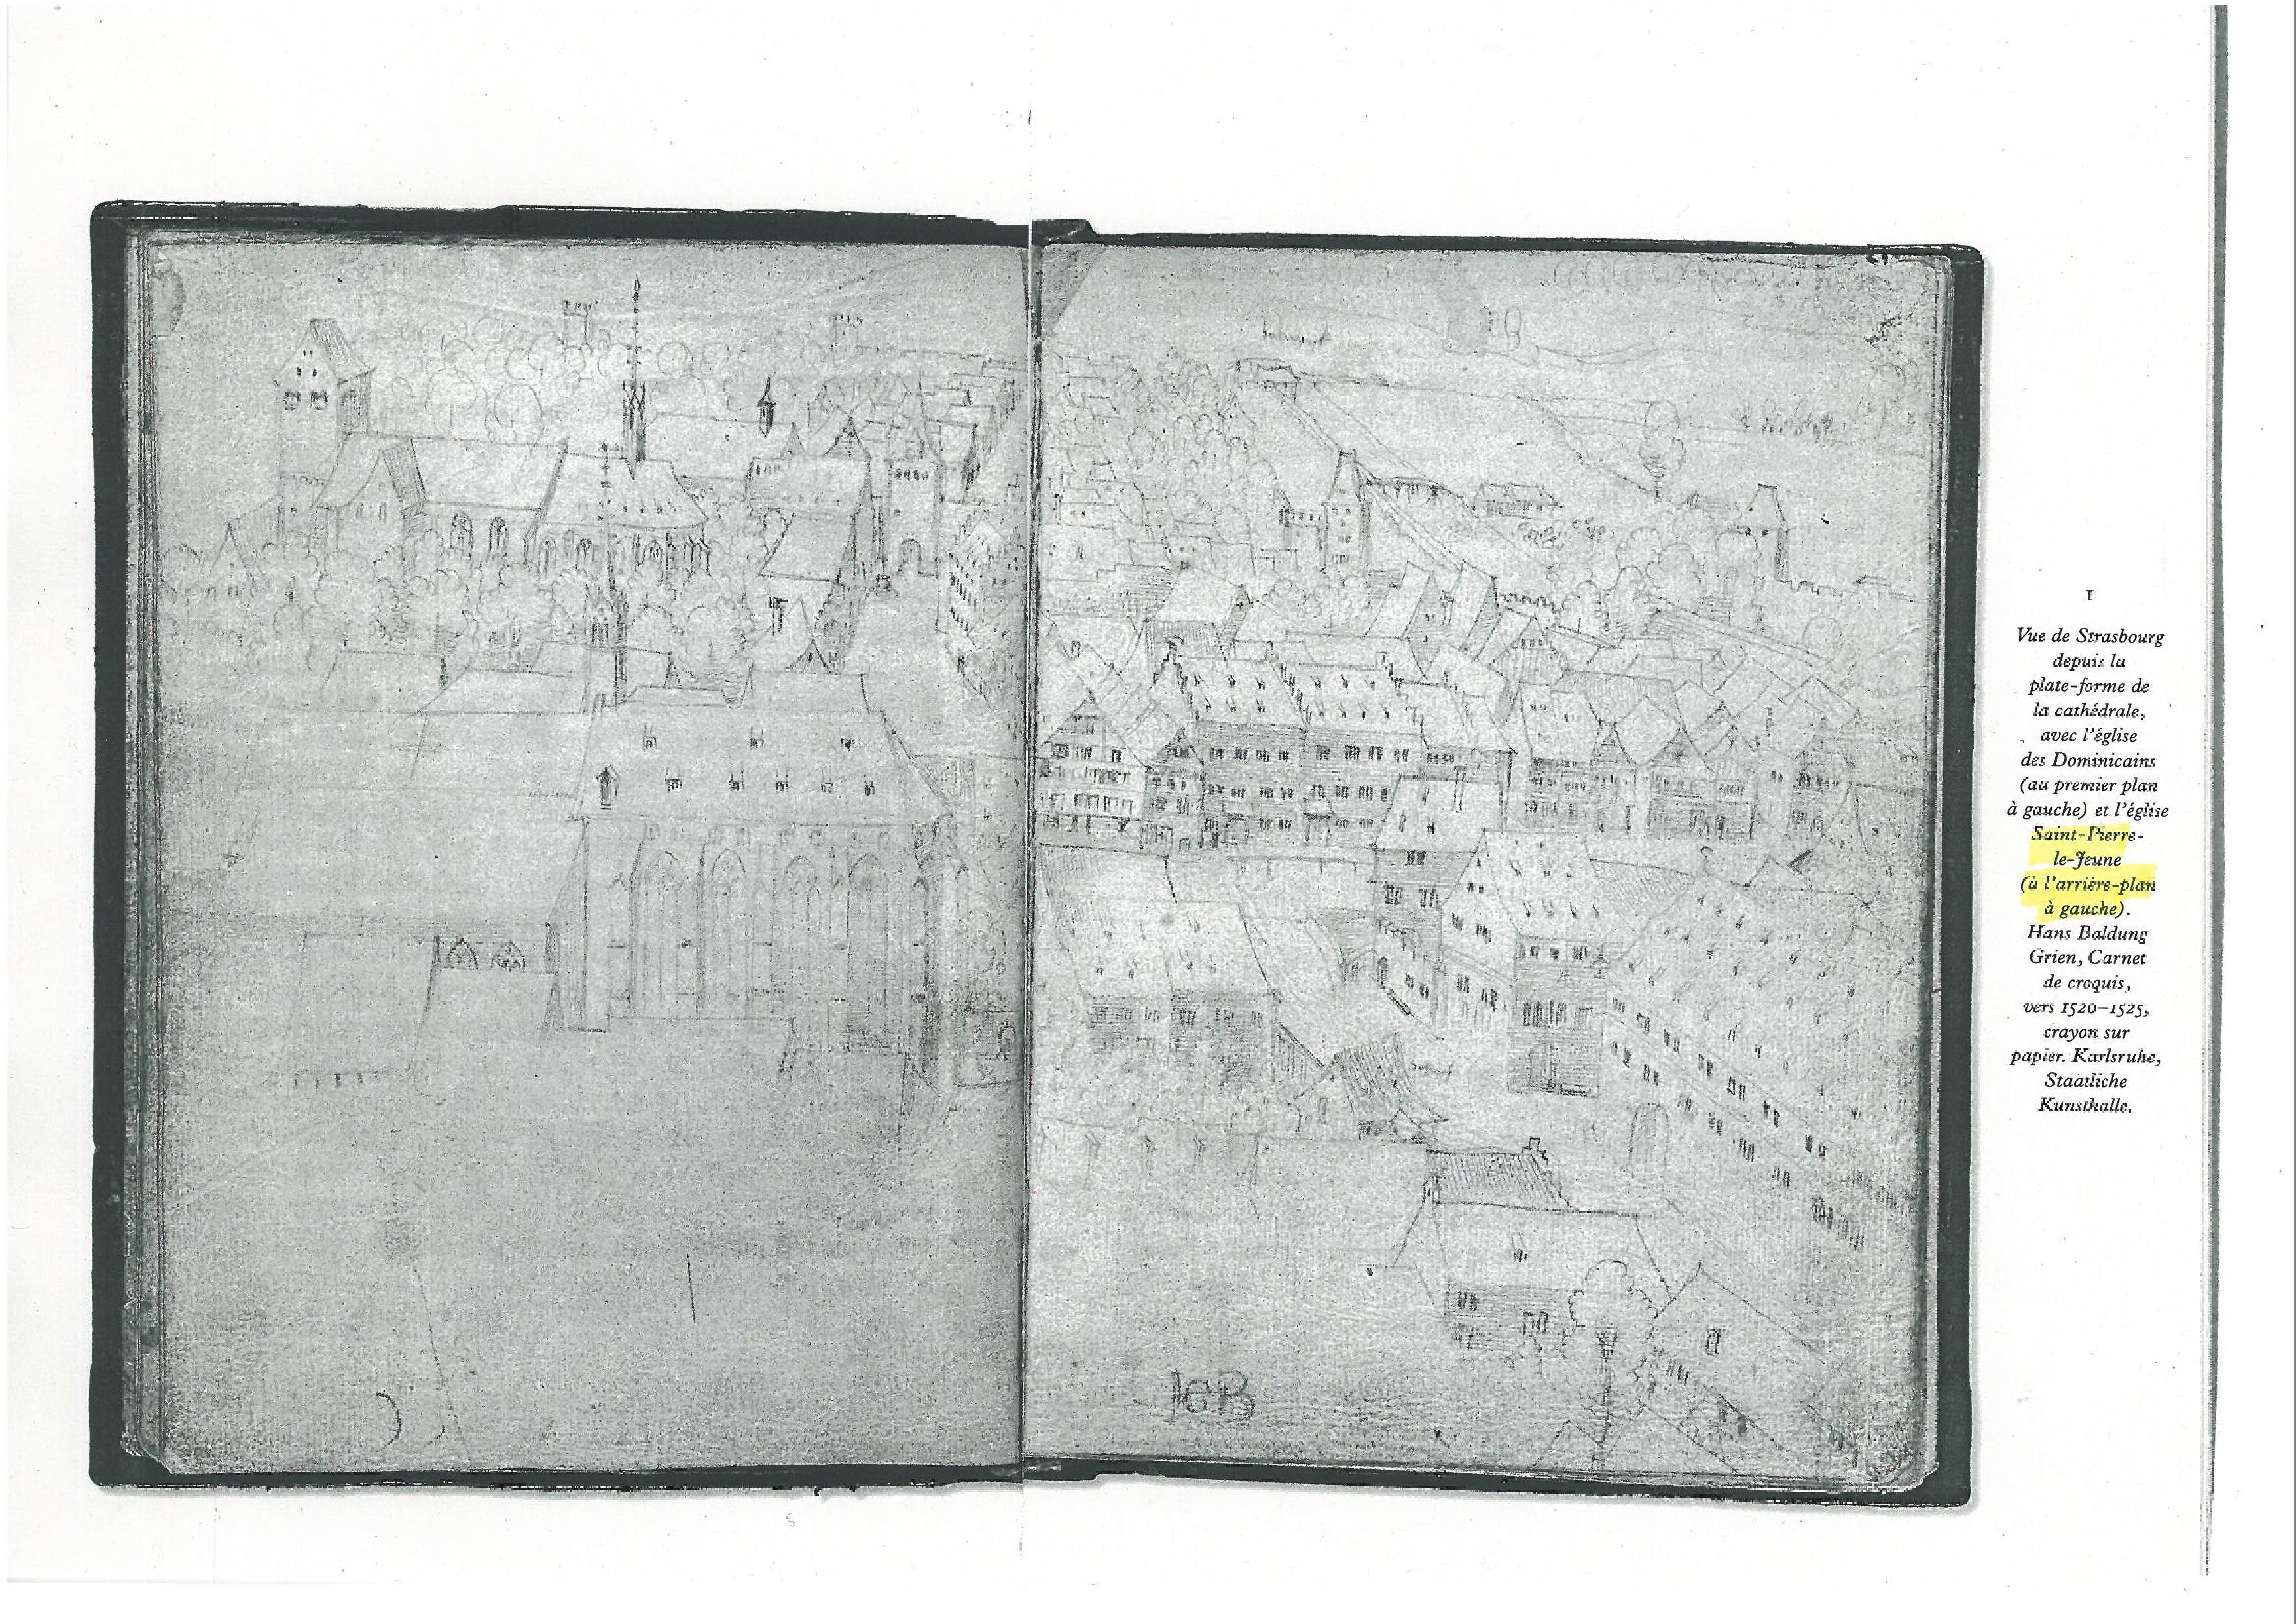 1
Vue de Strasbourg
depuis la
plate-forme de
la cathédrale,
avec l'église
des Dominicains
(au premier plan
à gauche) et l'église
Saint-Pierre-
le-Jeune
(à l'arrière-plan
à gauche).
Hans Baldung
Grien, Carnet
de croquis,
vers 1520–1525,
crayon sur
papier. Karlsruhe,
Staatliche
Kunsthalle.
HGB